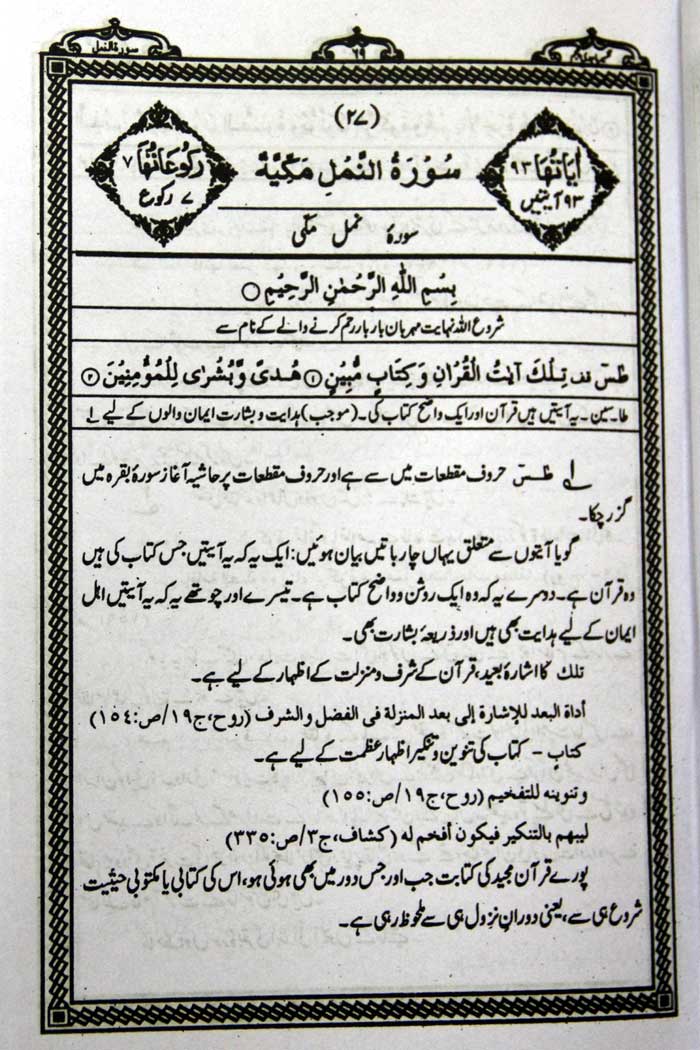 سورۃ النمل
۶۹
(۲۷)
اٰیَاتُهَا ۹۳
۹۳ آیتیں
سُوْرَةُ النَّمْلِ مَكِّيَّةٌ
رُكُوْعَاتُهَا ۷
۷ رکوع
سورۂ نمل مکی
بِسْمِ اللّٰهِ الرَّحْمٰنِ الرَّحِيْمِ ○
شروع اللہ نہایت مہربان بار بار رحم کرنے والے کے نام سے
طٰسٓ قف تِلْكَ اٰيٰتُ الْقُرْاٰنِ وَكِتَابٍ مُّبِيْنٍ ۝۱ هُدًى وَّبُشْرٰى لِلْمُؤْمِنِيْنَ ۝۲
طا۔سین۔ یہ آیتیں ہیں قرآن اور ایک واضح کتاب کی۔ (موجب) ہدایت و بشارت ایمان والوں کے لیے ۱
۱ طٰسٓ حروف مقطعات میں سے ہے اور حروف مقطعات پر حاشیہ آغاز سورۂ بقرہ میں
گزر چکا۔
گویا آیتوں سے متعلق یہاں چار باتیں بیان ہوئیں: ایک یہ کہ یہ آیتیں جس کتاب کی ہیں
وہ قرآن ہے۔ دوسرے یہ کہ وہ ایک روشن و واضح کتاب ہے۔ تیسرے اور چوتھے یہ کہ یہ آیتیں اہل
ایمان کے لیے ہدایت بھی ہیں اور ذریعۂ بشارت بھی۔
تلك کا اشارۂ بعید، قرآن کے شرف و منزلت کے اظہار کے لیے ہے۔
أداة البعد للإشارة إلى بعد المنزلة في الفضل والشرف (روح، ج۱۹/ص:۱۵٤)
کتاب - کتاب کی تنوین و تنکیر اظہار عظمت کے لیے ہے۔
وتنوينه للتفخيم (روح، ج۱۹/ص:۱۵۵)
ليبهم بالتنكير فيكون أفخم له (كشاف، ج۳/ص:۳۳۵)
پورے قرآن مجید کی کتابت جب اور جس دور میں بھی ہوئی ہو، اس کی کتابی یا مکتوبی حیثیت
شروع ہی سے، یعنی دوران نزول ہی سے ملحوظ رہی ہے۔